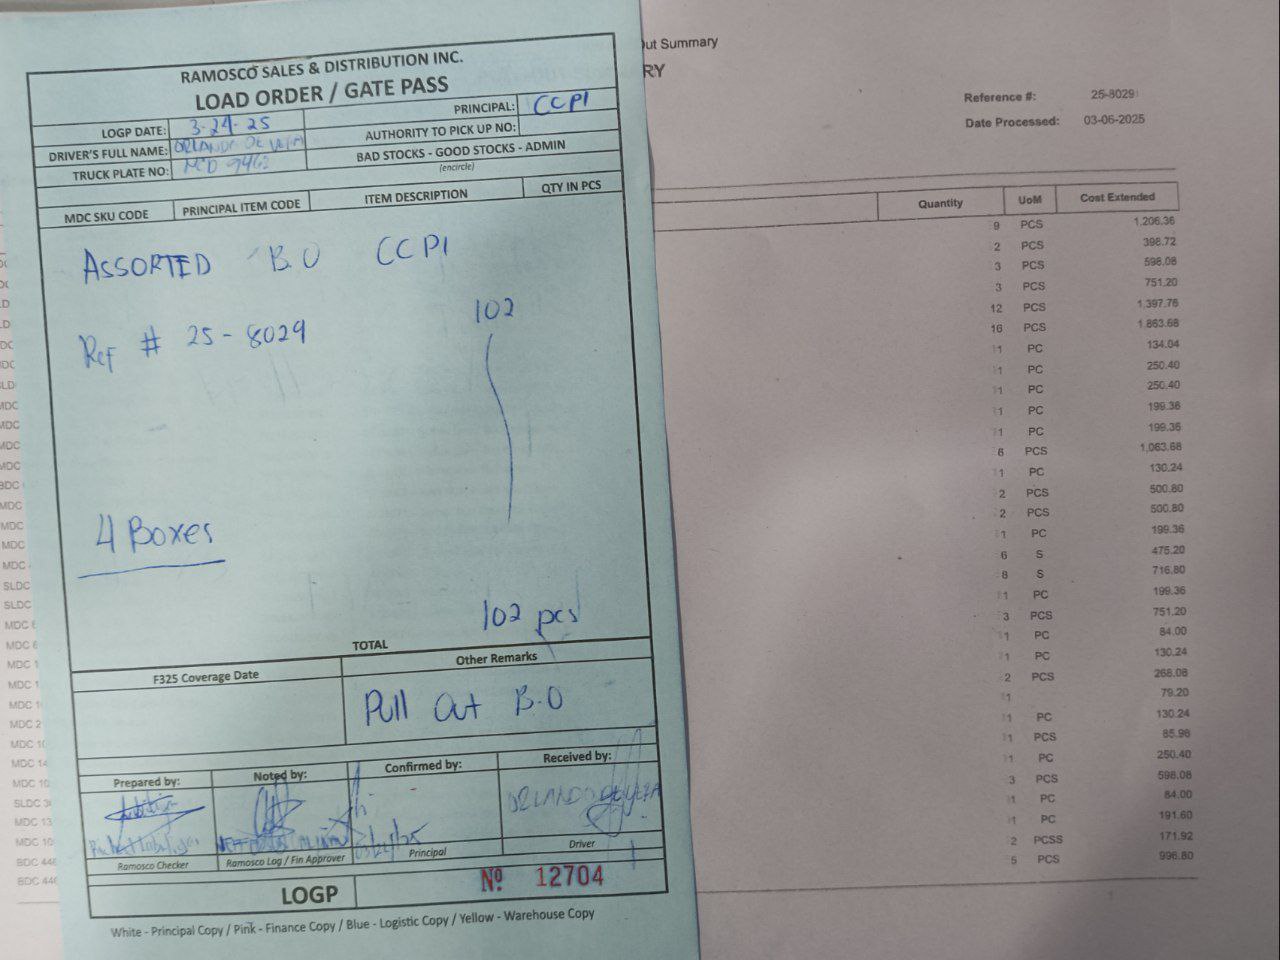 RAMOSCO SALES & DISTRIBUTION INC.
LOAD ORDER / GATE PASS
LOGP DATE: 3-24-25
PRINCIPAL: CCPI
DRIVER'S FULL NAME: ORLANDO DE VERA
AUTHORITY TO PICK UP NO:
TRUCK PLATE NO: 9462
BAD STOCKS - GOOD STOCKS - ADMIN
(encircle)
MDC SKU CODE PRINCIPAL ITEM CODE ITEM DESCRIPTION QTY IN PCS
ASSORTED B.O CCPI
102
Ref # 25-8029
4 Boxes
102 pcs
TOTAL
F325 Coverage Date
Other Remarks
Pull Out B.O
Prepared by: Noted by: Confirmed by: Received by:
ORLANDO DE VERA
Ramosco Checker Ramosco Log / Fin Approver Principal Driver
LOGP Nº 12704
White - Principal Copy / Pink - Finance Copy / Blue - Logistic Copy / Yellow - Warehouse Copy
out Summary
RY
Reference #: 25-8029
Date Processed: 03-06-2025
Quantity UoM Cost Extended
9 PCS 1,206.36
2 PCS 398.72
3 PCS 598.08
3 PCS 751.20
12 PCS 1,397.76
16 PCS 1,863.68
1 PC 134.04
1 PC 250.40
1 PC 250.40
1 PC 199.36
1 PC 199.36
6 PCS 1,063.68
1 PC 130.24
2 PCS 500.80
2 PCS 500.80
1 PC 199.36
6 S 475.20
8 S 716.80
1 PC 199.36
3 PCS 751.20
1 PC 84.00
1 PC 130.24
2 PCS 268.08
1 79.20
1 PC 130.24
1 PCS 85.96
1 PC 250.40
3 PCS 598.08
1 PC 84.00
1 PC 191.60
2 PCSS 171.92
5 PCS 996.80